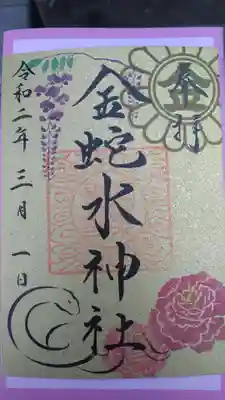 奉拝
金蛇水神社
令和二年三月一日